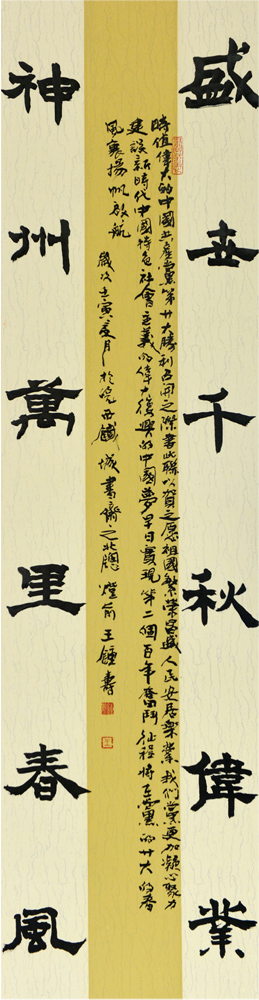 盛世千秋偉業
時值偉大的中國共產黨第廿大勝利召開之際書此聯以賀之愿祖國繁榮昌盛人民安居樂業我們黨更加凝心聚力
建設新時代中國特色社會主義的偉大復興的中國夢早日實現第二個百年奮鬥征程將在黨的廿大的春
風裏揚帆啟航
歲次壬寅夏月於皖西鐵城書齋之北窗燈前王鍾壽
神州萬里春風